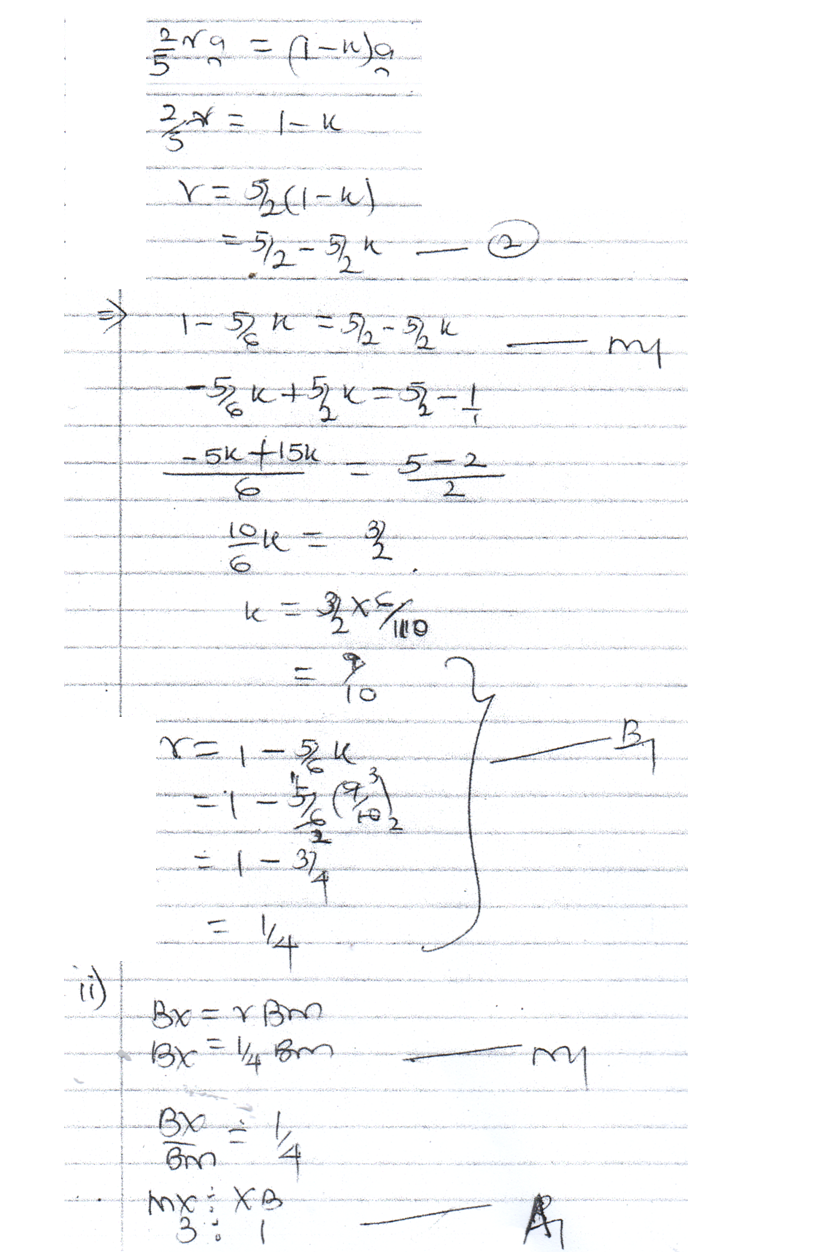 2/5 r a = (1 - k) a
2/5 r = 1 - k
r = 5/2 (1 - k)
= 5/2 - 5/2 k — ②
⇒ 1 - 5/6 k = 5/2 - 5/2 k — M1
-5/6 k + 5/2 k = 5/2 - 1/1
(-5k + 15k)/6 = (5 - 2)/2
10/6 k = 3/2
k = 3/2 × 6/10
= 9/10
r = 1 - 5/6 k — B1
= 1 - 5/6 (9/10)
= 1 - 3/4
= 1/4
ii)
BX = r BM
BX = 1/4 BM — M1
BX/BM = 1/4
MX : XB
3 : 1 — A1